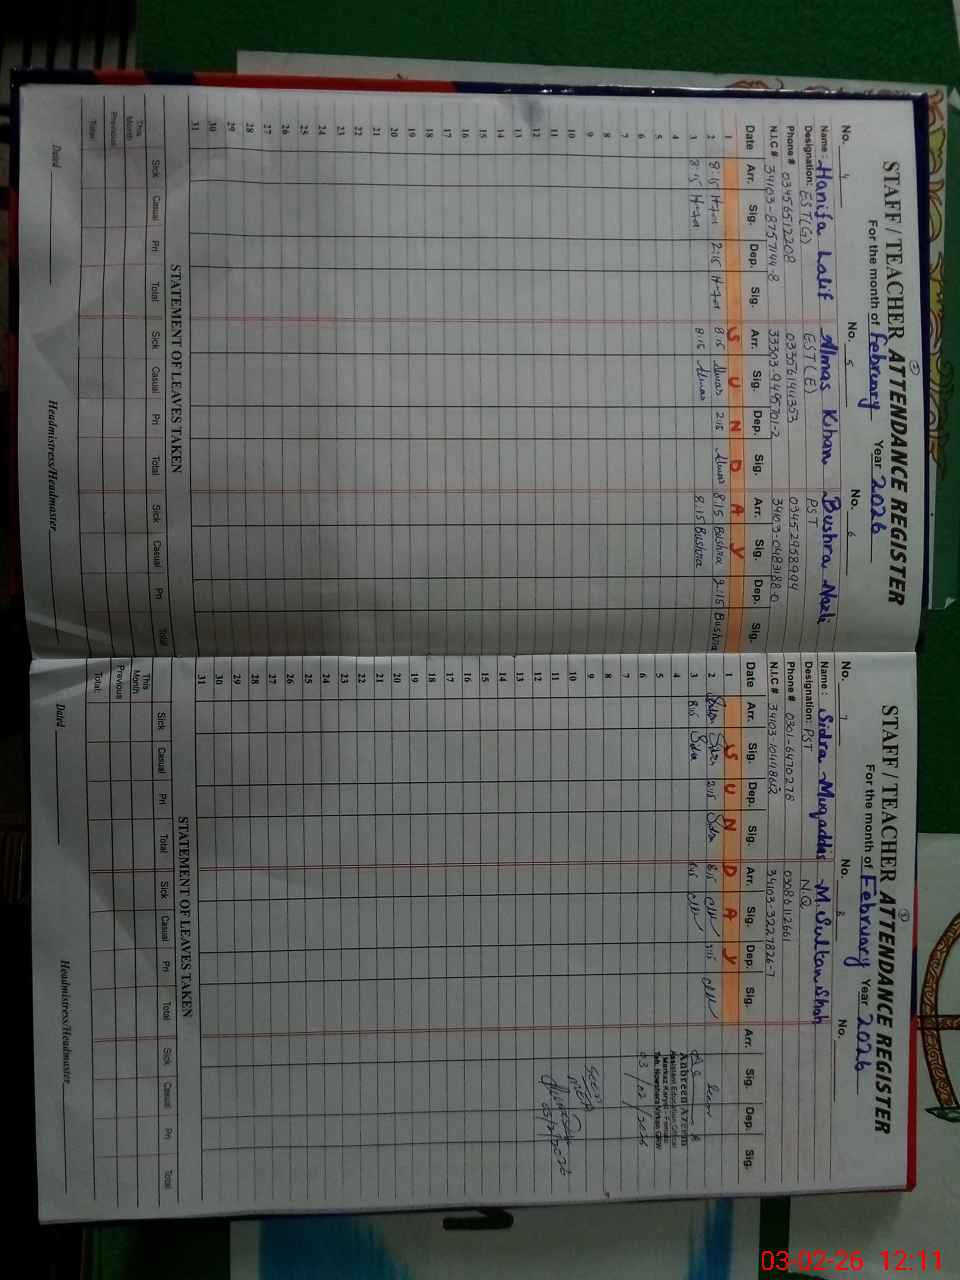 STAFF / TEACHER ATTENDANCE REGISTER
For the month of February Year 2026
No. 4 No. 5 No. 6
Name : Hanifa Latif Almas Khan Bushra Nazli
Designation: EST(G) EST(E) PST
Phone # 03456512208 03356144353 03452958994
N.I.C # 34103-8757144-8 33303-9495701-2 34103-0483188-0
Date Arr. Sig. Dep. Sig. Arr. Sig. Dep. Sig. Arr. Sig. Dep. Sig.
1 S U N D A Y
2 8:15 2:15 8:15 Almas 2:15 Almas 8:15 Bushra 2:15 Bushra
3 8:15 8:15 Almas 8:15 Bushra
4
5
6
7
8
9
10
11
12
13
14
15
16
17
18
19
20
21
22
23
24
25
26
27
28
29
30
31
STATEMENT OF LEAVES TAKEN
Sick Casual Pri Total Sick Casual Pri Total Sick Casual Pri Total
This Month
Previous
Total:
Dated Headmistress/Headmaster
STAFF / TEACHER ATTENDANCE REGISTER
For the month of February Year 2026
No. 7 No. 8 No.
Name : Sidra Muqaddas M. Sultan Shah
Designation: PST N.Q
Phone # 0301-6470278 03086112661
N.I.C # 34103-3227826-7
Date Arr. Sig. Dep. Sig. Arr. Sig. Dep. Sig. Arr. Sig. Dep. Sig.
1 S U N D A Y
2 Sidra 2:15 Sidra 8:15 2:15
3 8:15 Sidra 8:15
4
5
6
7
8
9
10
11
12
13
14
15
16
17
18
19
20
21
22
23
24
25
26
27
28
29
30
31
Anbreen Azeem
Assistant Education Officer
Markaz Karyal - Female
Teh. Nowshera Virkan GRW
03/02/2026
Seen
MEA
03/2/2026
STATEMENT OF LEAVES TAKEN
Sick Casual Pri Total Sick Casual Pri Total Sick Casual Pri Total
This Month
Previous
Total:
Dated Headmistress/Headmaster
03-02-26 12:11